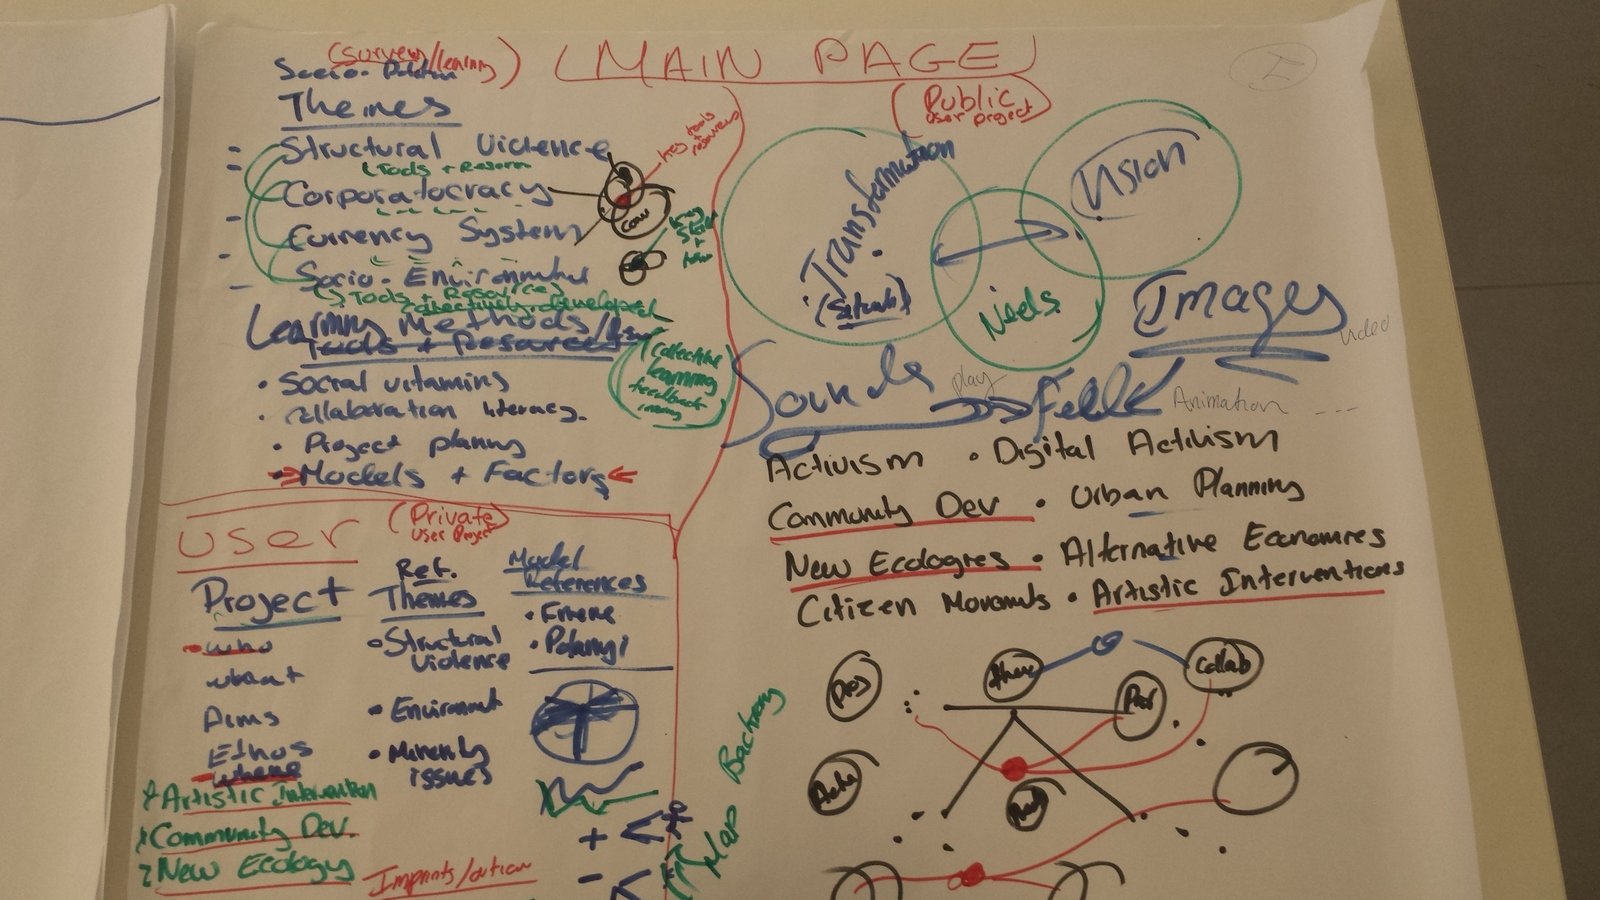 (Survey/learning)
(MAIN PAGE)
Themes
Structural Violence
Tools +
Corporatocracy
Currency System
Socio-Environmental
Tools + Resources
collectively developed
Learning Methods/
Tools + Resources
key tools
+
resources
Com
(Collective
learning
feedback
• Social vitamins
• Collaboration literacy.
• Project planning
• Models + Factors
(Public
user project)
Transformation
Vision
Needs
Images
video
Sounds
play
Animation ---
Activism • Digital Activism
Community Dev • Urban Planning
New Ecologies • Alternative Economies
Citizen Movements • Artistic Interventions
User
(Private
User Project)
Project
who
what
Aims
Ethos
where
Artistic Intervention
Community Dev.
New Ecology
Imprints/action
Ref.
Themes
• Structural
Violence
• Environment
• Minority
issues
Model
References
+
-
Map Backing
collab